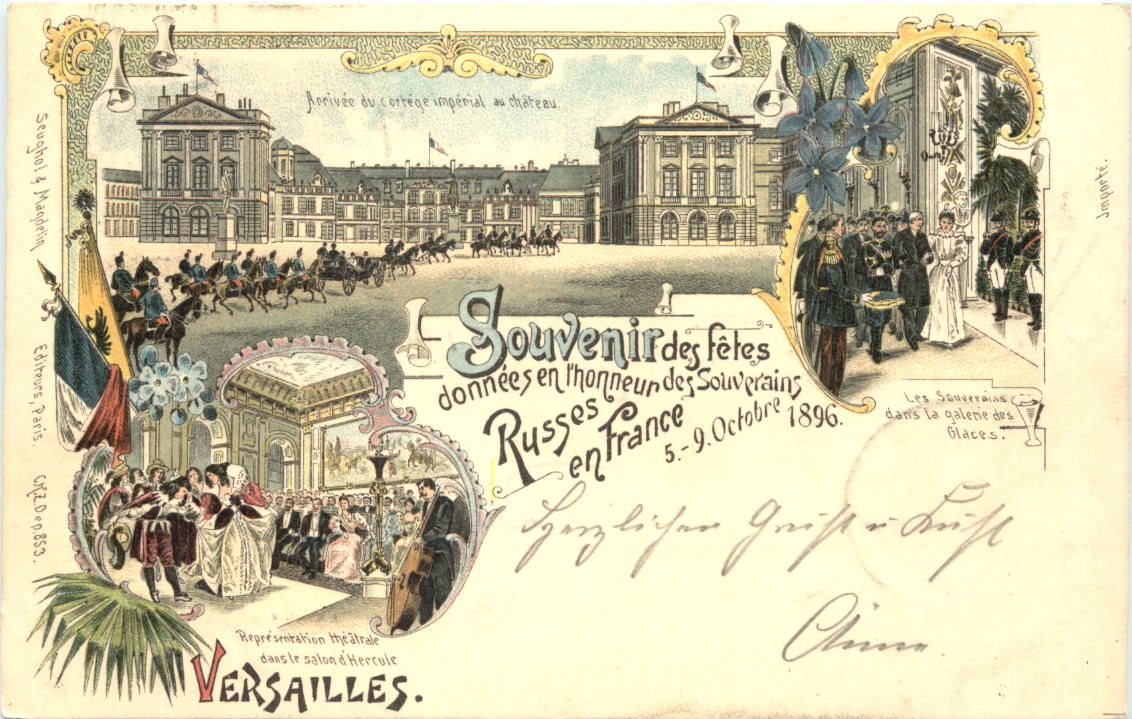 Arrivée du cortége impérial au château.
Souvenir des fêtes
données en l'honneur des Souverains
Russes
en France
5.-9. Octobre 1896.
Les Souverains
dans la galerie des
Glaces.
Herzlichen Gruß u Kuß
Représentation théâtrale
dans le salon d'Hercule
VERSAILLES.
Editeurs, Paris.
Importé.